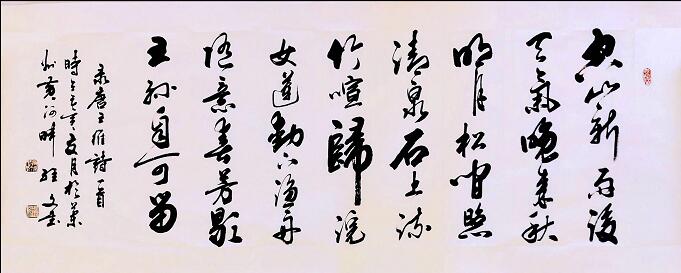 空山新雨後
天氣晚來秋
明月松間照
清泉石上流
竹喧歸浣
女蓮動下漁舟
随意春芳歇
王孫自可留
录唐王維詩一首
時夏月於蘭
州黄河畔